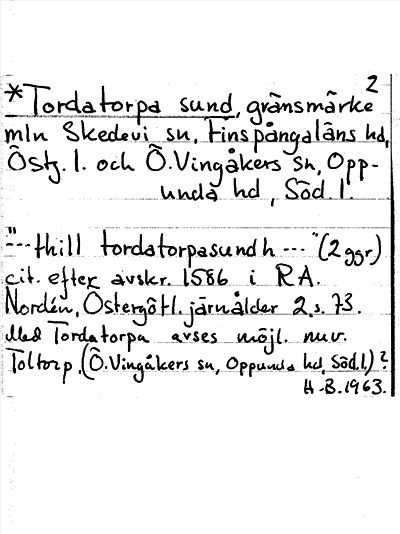 2
*Tordatorpa sund, gränsmärke
mln Skedevi sn, Finspångaläns hd,
Östg. l. och Ö. Vingåkers sn, Opp-
unda hd, Söd. l.
"--- thill tordatorpasundh ---" (2 ggr)
cit. efter avskr. 1586 i RA.
Nordén, Östergötl. järnålder 2, s. 73.
Med Tordatorpa avses möjl. nuv.
Toltorp, (Ö. Vingåkers sn, Oppunda hd, Söd. l.)?
H-B. 1963.